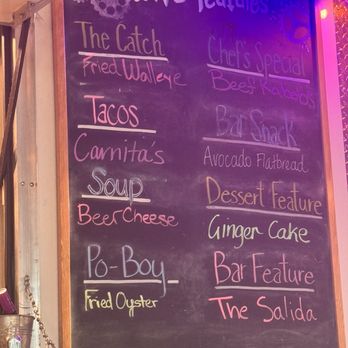 features
The Catch
Fried Walleye
Tacos
Carnita's
Soup
Beer Cheese
Po-Boy
Fried Oyster
Chef's Special
Beef Kabobs
Bar Snack
Avocado Flatbread
Dessert Feature
Ginger Cake
Bar Feature
The Salida